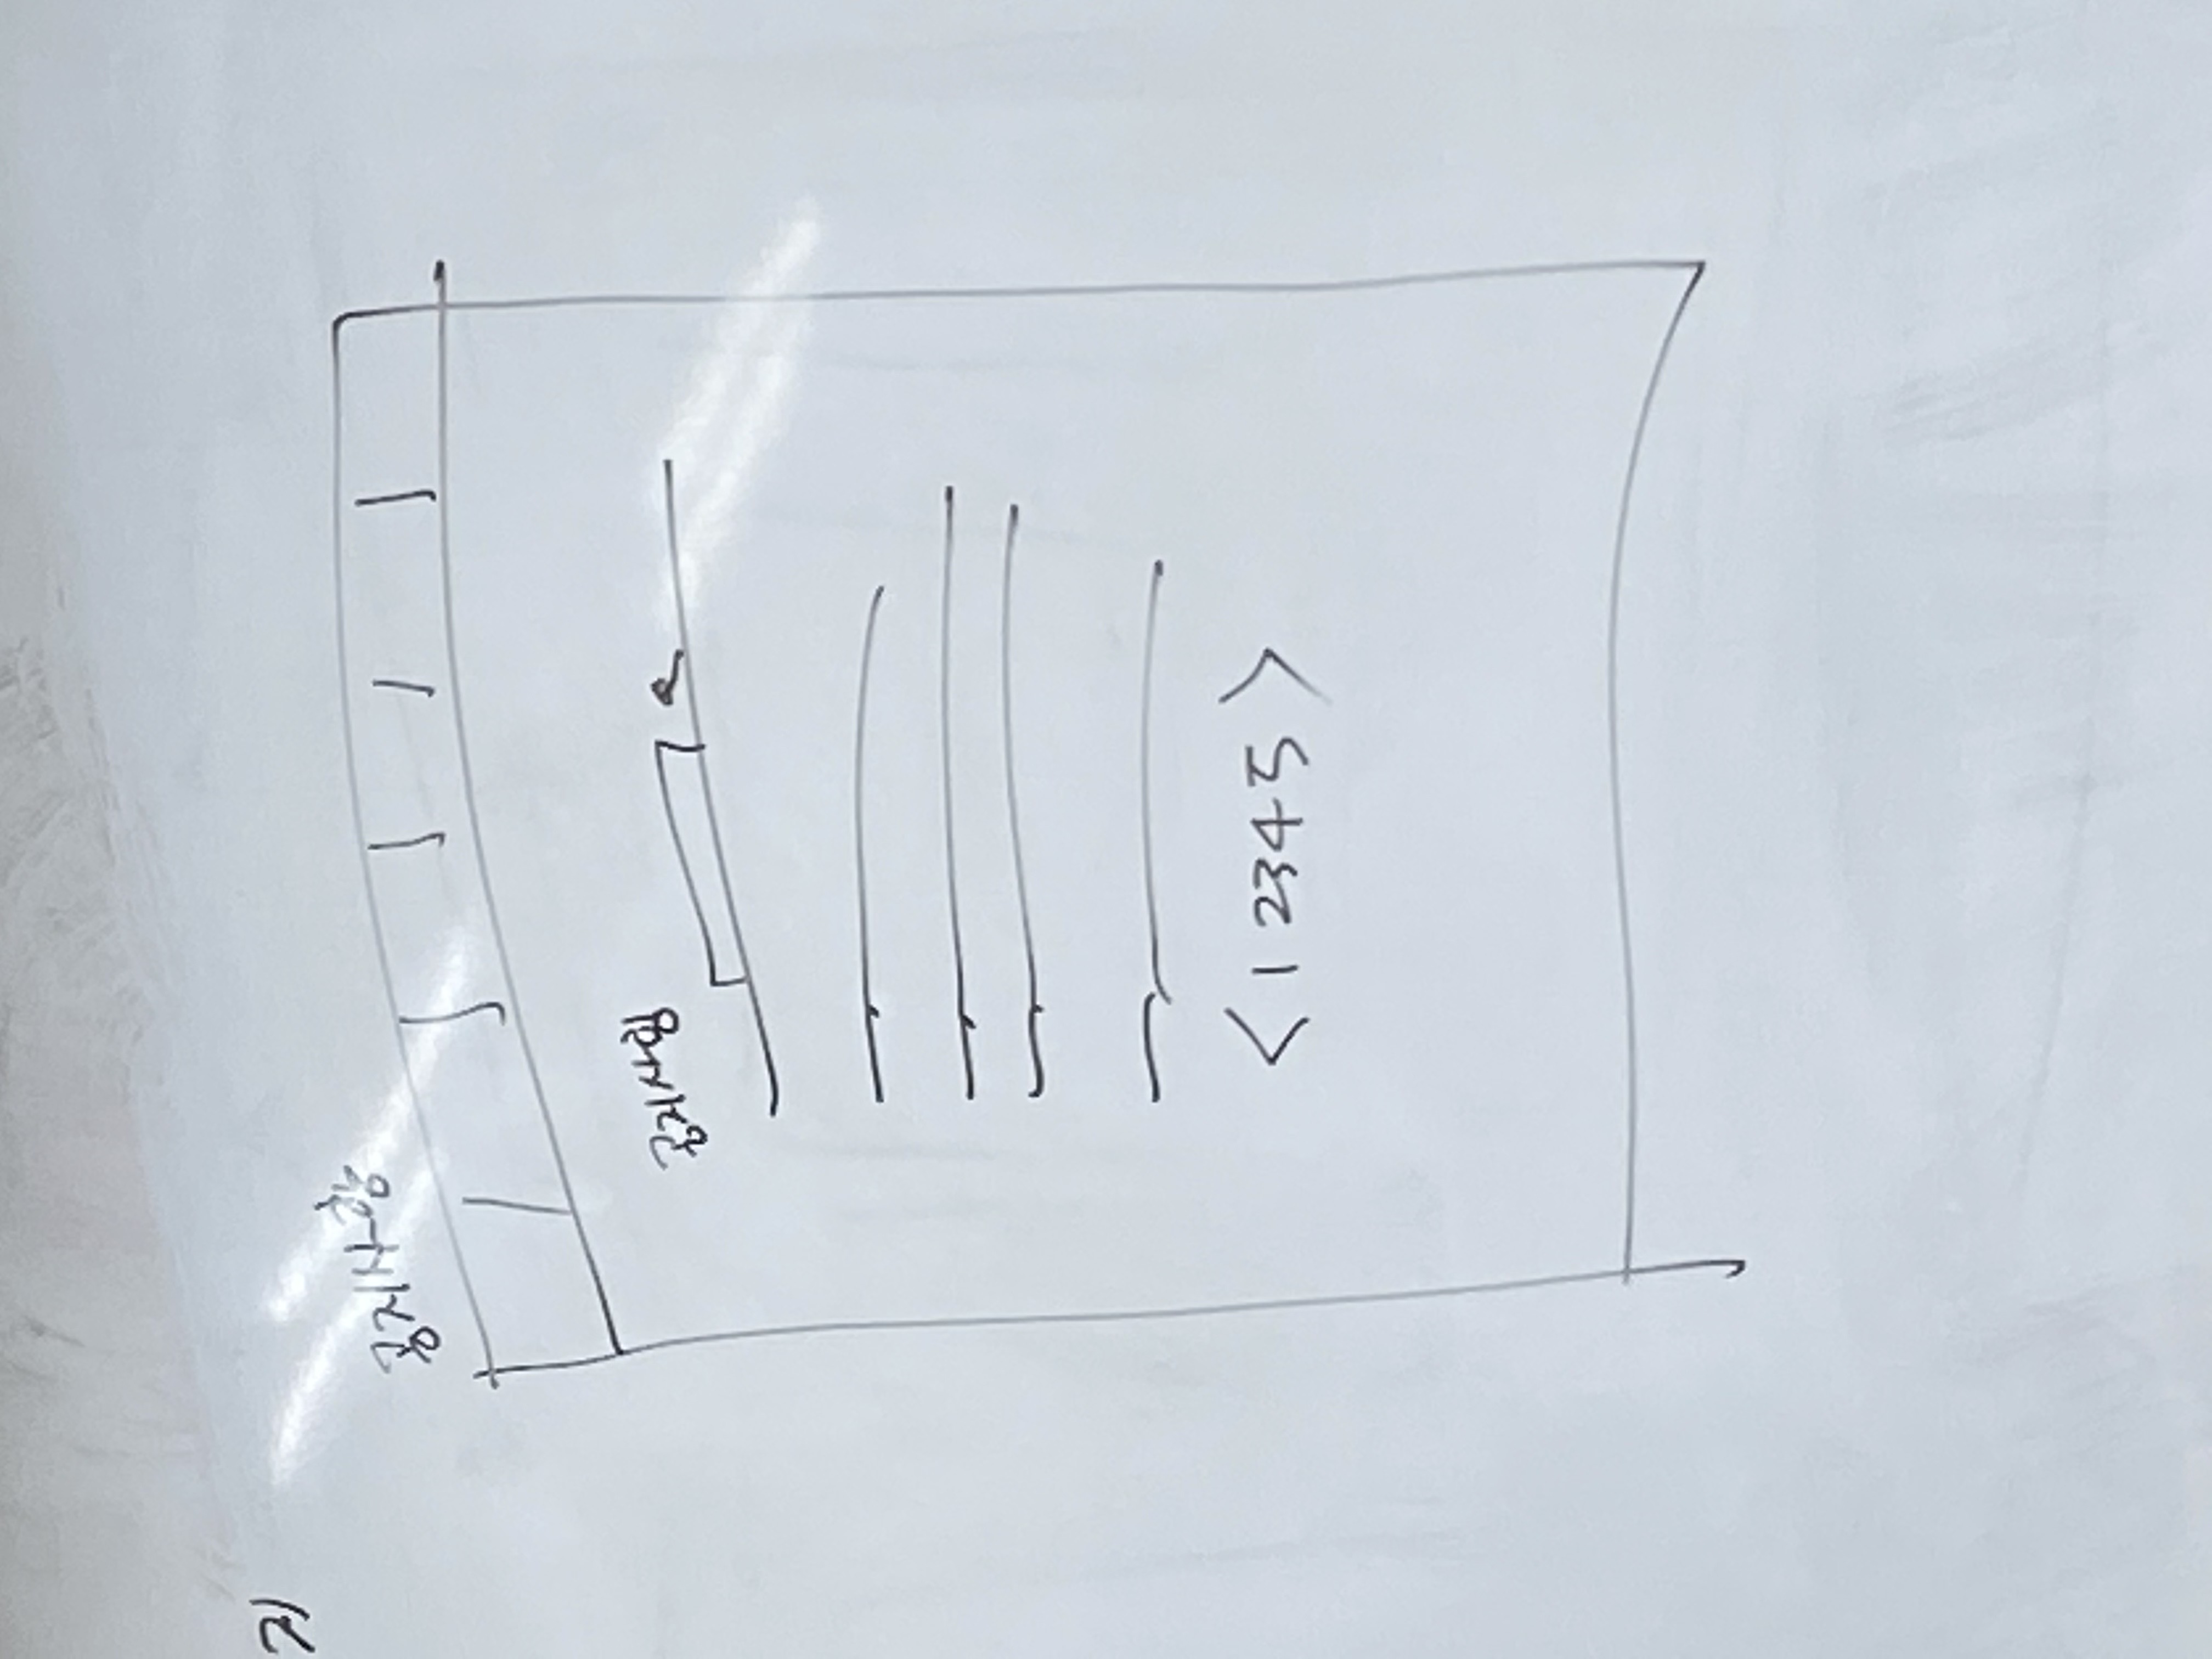 지
공지사항
공지사항
< 1 2 3 4 5 >